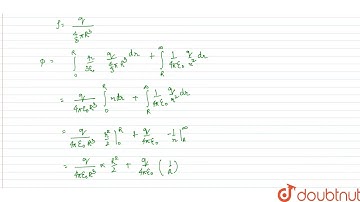 ρ = q / (4/3 πR³)
φ = ∫₀ᴿ r/3ε₀ q/(4/3 πR³) dr + ∫_R^∞ 1/4πε₀ q/r² dr
= q/4πε₀R³ ∫₀ᴿ r dr + ∫_R^∞ 1/4πε₀ q/r² dr
= q/4πε₀R³ r²/2 |₀ᴿ + q/4πε₀ -1/r |_R^∞
= q/4πε₀R³ × R²/2 + q/4πε₀ (1/R)
doubtnut